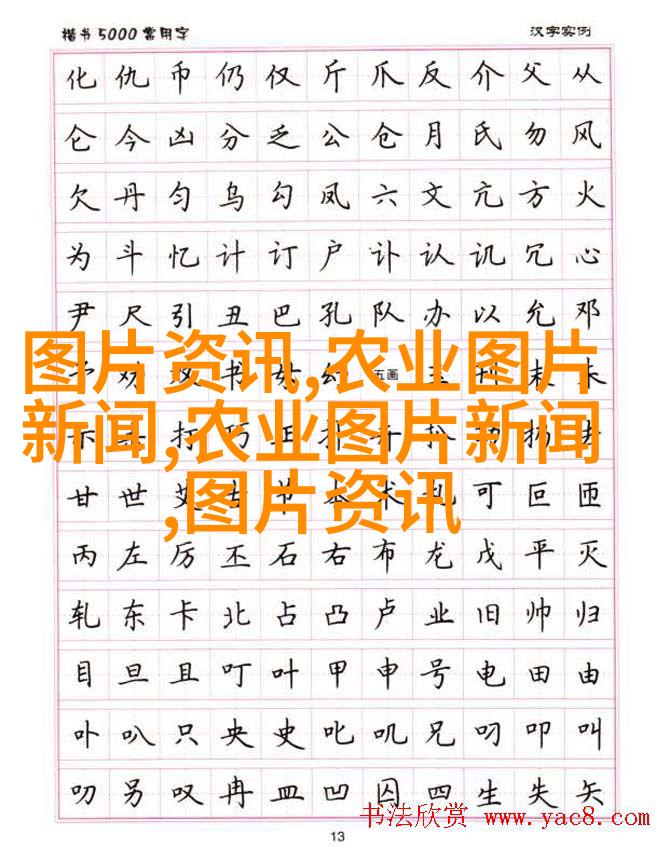 楷书5000常用字 汉字实例
化仇币仍仅斤爪反介父从
仑今凶分乏公仓月氏勿风
欠丹匀乌勾凤六文亢方火
为斗忆计订户讣认讥冗心
尹尺引丑巴孔队办以允邓
图片资讯,农业图片
书 五画 末
新闻,农业图片新闻
打 巧
甘世 可叵匝
,图片资讯
丙左厉丕石右布龙戊平灭
轧东卡北占凸卢业旧帅归
目旦且叮叶甲申号电田由
卟叭只央史叱叽兄叼叩叫
叻另叹冉皿凹囚四生失矢
书法欣赏 www.yac8.com
13